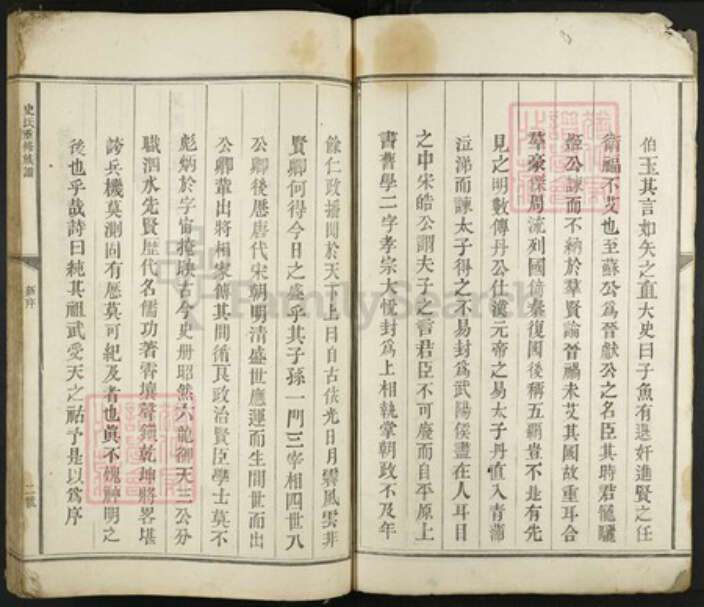 伯玉其言如矢之直大史曰子魚有退奸進賢之任
衛福不艾也至蘇公為晉獻公之名臣其時君寵驪
姬公諫而不納於羣賢論晉禍未艾其國故重耳合
羣豪傑周流列國倚秦復國後稱五覇豈不是有先
見之明數傳丹公仕漢元帝之易太子丹直入青蒲
泣涕而諫太子得之不易封爲武陽侯盡在人耳目
之中宋皓公謂夫子之言君臣不可廢而自平原上
書舊學二字孝宗大悅封爲上相執掌朝政不及年
餘仁政播聞於天下上日自古依光日月響風雲非
賢卿何得今日之盛乎其子孫一門三宰相四世八
公卿後歷唐代宋朝明清盛世應運而生間世而出
公卿輩出將相家傳其間循良政治賢臣學士莫不
彪炳於字宙掩映古今史册昭然六龍御天三公分
職泗水先賢歷代名儒功著霄壤聲鎮乾坤將畧堪
誇兵機莫測固有歷莫可紀及者也眞不愧辭明之
後也乎哉詩曰純其祖武受天之祜予是以爲序
史氏重修族譜
新序
二號
FamilySearch